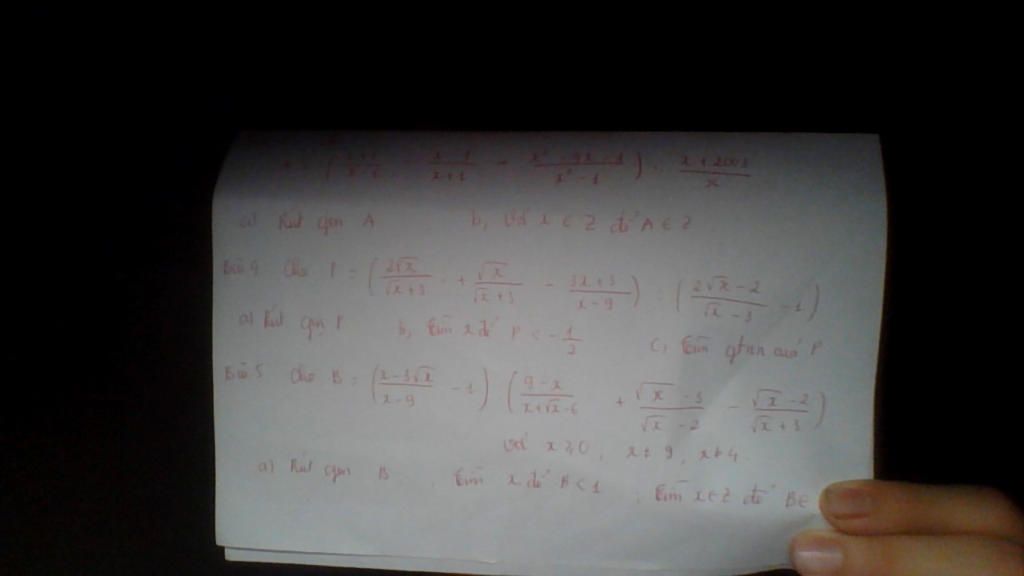 ( x+1/x-1 x-1/x+1 x² - 4x - 1/x² - 1 ) x + 2003/x
a) Rút gọn A b, Với x ∈ Z để A ∈ Z
Bài 4 Cho P = ( 2√x/√x + 3 + √x/√x + 3 - 3x + 3/x - 9 ) : ( 2√x - 2/√x - 3 - 1 )
a) Rút gọn P b, Tìm x để P < - 1/2 c, Tìm gtnn của P
Bài 5 Cho B = ( x - 3√x/x - 9 - 1 ) ( 9 - x/x + √x - 6 + √x - 3/√x - 2 - √x - 2/√x + 3 )
Với x ≥ 0, x ≠ 9, x ≠ 4
a) Rút gọn B , Tìm x để B < 1 ; Tìm x ∈ Z để B ∈